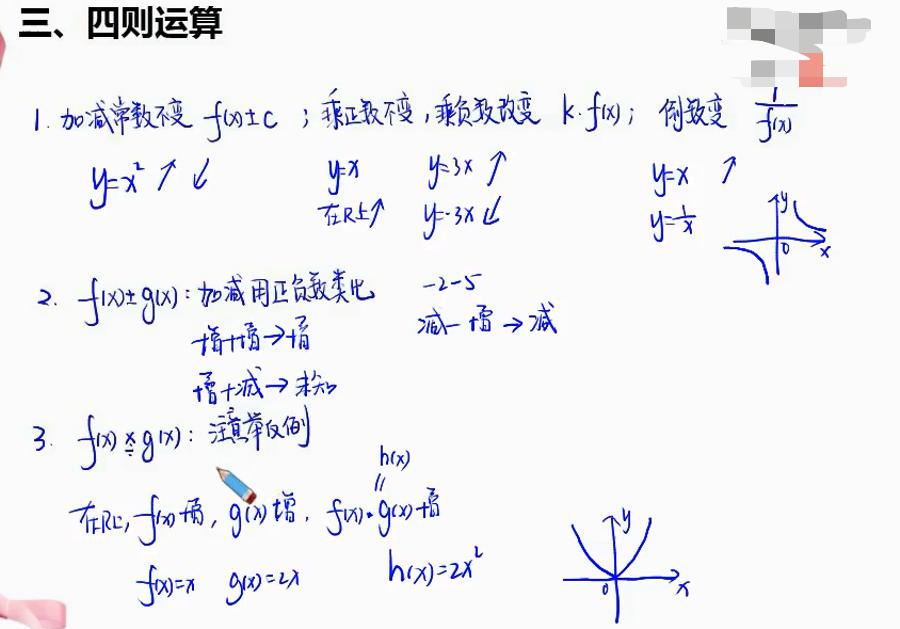 三、四则运算
1. 加减常数不变 f(x)±c ；乘正数不变，乘负数改变 k·f(x)； 倒数变 1/f(x)
y=x² ↗ ↙ y=x y=3x ↗ y=x ↗
在R上↗ y=-3x ↙ y=1/x y 0 x
2. f(x)±g(x)：加减用正负数类比 -2-5
增+增→增 减-增→减
增+减→未知
3. f(x)×÷g(x)：注意举反例
h(x)
=
在R上，f(x)增，g(x)增，f(x)·g(x)增
f(x)=x g(x)=2x h(x)=2x² y 0 x